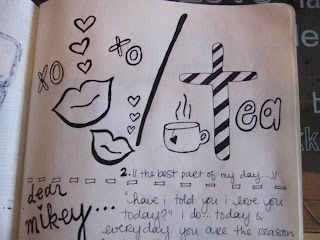 xo
xo
tea
2. // the best part of my day...//
dear
mikey...
"have i told you i love you
today?" i do... today &
everyday. you are the reason